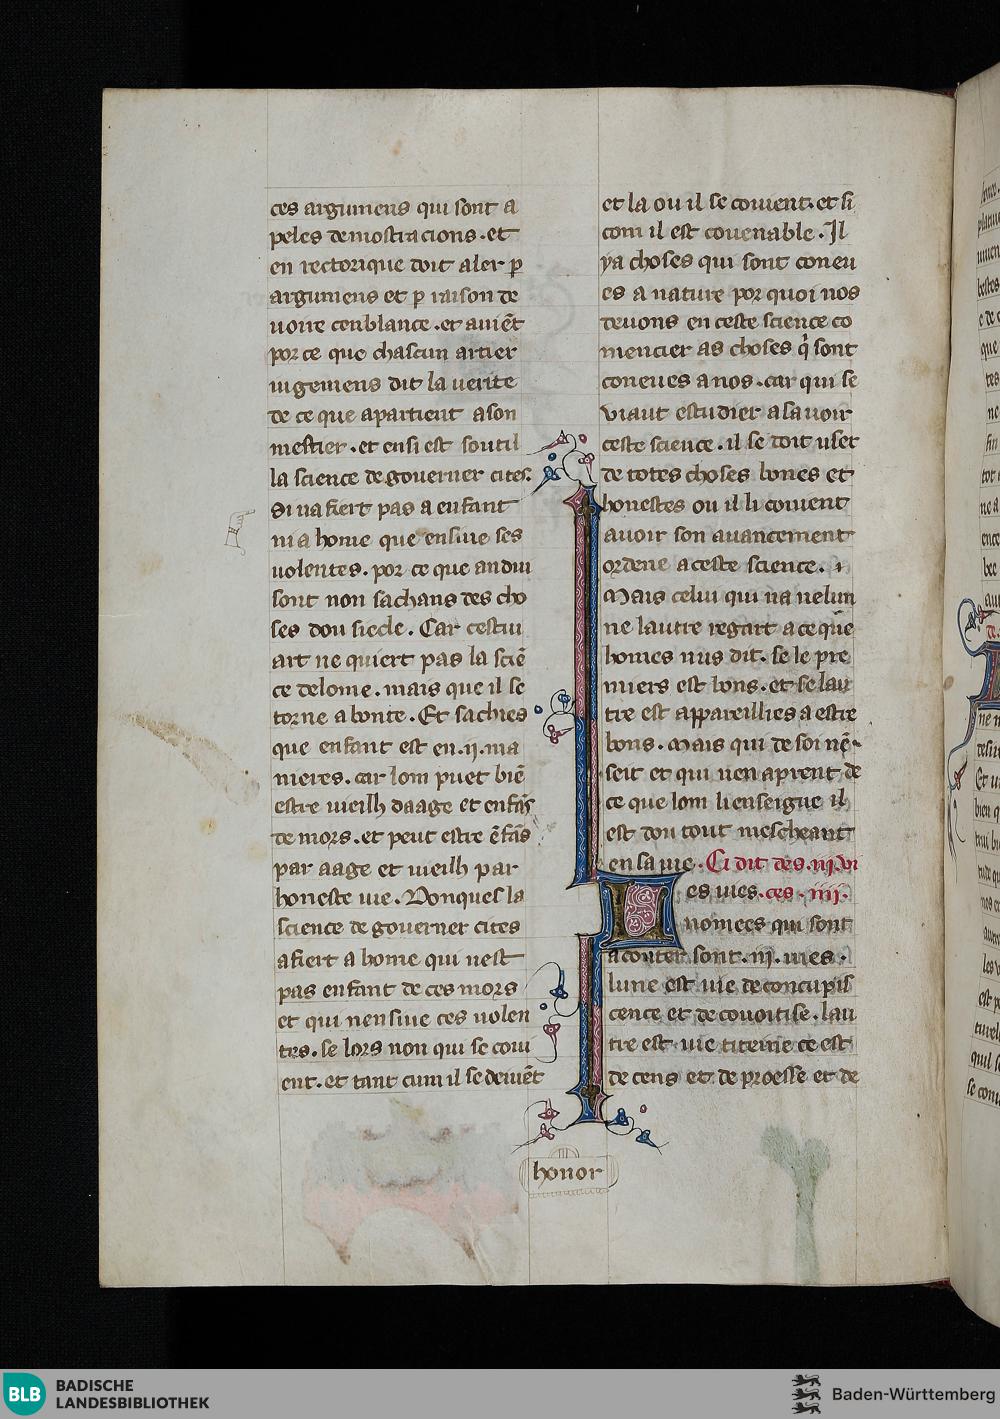 ces argumens qui sont a
peles demostracions . et
en rectorique doit aler p̲
argumens et p̲ raison de
uoire cenblance . et auiẽt
por ce que chascun artier
iugemens dit la uerite
de ce que apartient a son
mestier . et ensi est soutil
la science de gouerner cites.
Si na fiert pas a enfant
ni a home que ensiue ses
uolentes . por ce que andui
sont non sachans des cho
ses dou siecle . Car cestui
art ne quiert pas la sciẽ
ce delome . mais que il se
torne a bonte . Et sachies
que enfant est en .ij. ma
nieres . car lom puet biẽ
estre uieilh daage et enfãs
de mors . et peut estre ẽfãs
par aage et uieilh par
honeste uie . Donques la
science de gouerner cites
afiert a home qui nest
pas enfant de ces mors
et qui nensiue ces uolen
tes . se lors non qui se coui
ent . et tant cum il se deuiẽt
et la ou il se couient . et si
com il est couenable . Il
ya choses qui sont coneu
es a nature por quoi nos
deuons en ceste science co
mencier as choses q̃ sont
coneues a nos . car qui se
viaut estudier a sauoir
ceste science . il se doit user
de totes choses bones et
honestes ou il li couient
auoir son auancement
ordene a ceste science .
Mais celui qui na nelun
ne lautre regart a ce que
homes nus dit . se le pre
miers est bons . et se lau
tre est appareillies a estre
bons . Mais qui de soi nẽ
seit et qui nen aprent de
ce que lom li enseigne il
est dou tout mescheant
en sa uie . Ci dit des .iij. vi
es uies . ces . iiij .
nomees qui sont
a conter sont .iij. uies .
lune est uie de concupis
cence et de couoitise . lau
tre est uie citeine ce est
de cens et de proesse et de
honor
BLB
BADISCHE
LANDESBIBLIOTHEK
Baden-Württemberg